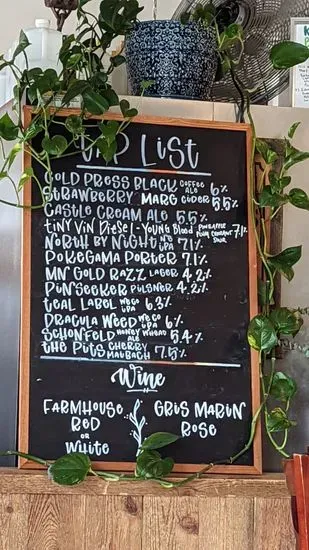 TAP LiST
COLD PRESS BLACK COFFEE ALE 6%
STRAWBERRY MARG CIDER 5.5%
CASTLE CREAM ALE 5.5%
TINY VIN DIESEL - YOUNG BLOOD PINEAPPLE PINK CURRANT SOUR 7.1%
NORTH BY NIGHT NE IPA 7.1%
POKEGAMA PORTER 7.1%
MN GOLD RAZZ LAGER 4.2%
PUNSEEKER PILSNER 4.2%
TEAL LABEL WC IPA 6.3%
DRACULA WEED WC IPA 6%
SCHONFELD HONEY WHEAT ALE 5.4%
THE PITS CHERRY MAIBACH 7.5%
Wine
FARMHOUSE
RED
OR
White
GRIS MARIN
ROSE